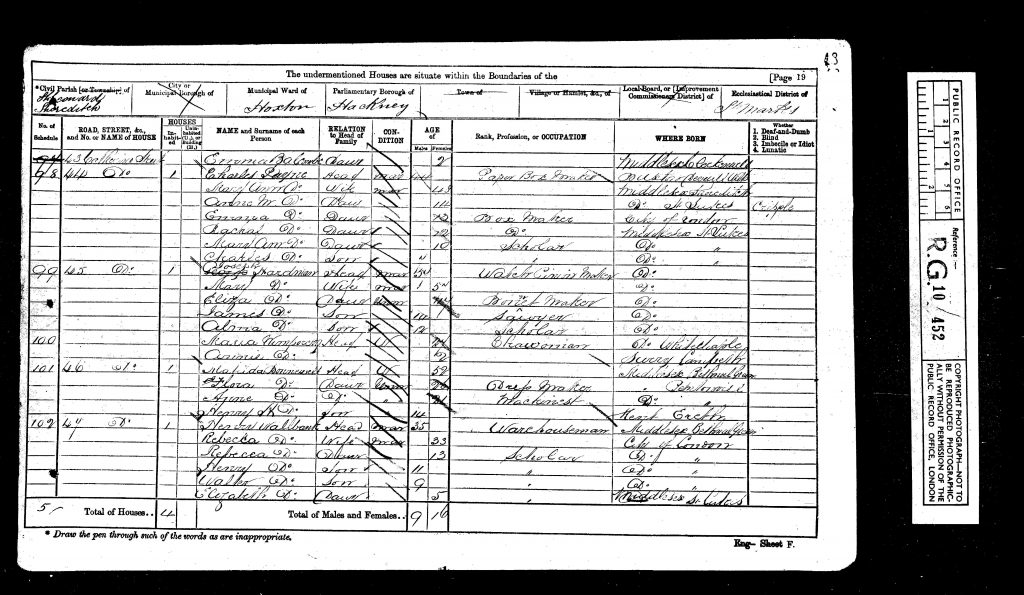 43
The undermentioned Houses are situate within the Boundaries of the [Page 19
*Civil Parish [or Township] of City or Municipal Borough of Municipal Ward of Parliamentary Borough of Town of Village or Hamlet, &c., of Local Board, or [Improvement Commissioners District] of Ecclesiastical District of
St Leonard Shoreditch Hoxton Hackney St Marks
No. of Schedule ROAD, STREET, &c., and No. or NAME of HOUSE HOUSES Inhabited Uninhabited (U.), or Building (B.) NAME and Surname of each Person RELATION to Head of Family CONDITION AGE of Males Females Rank, Profession, or OCCUPATION WHERE BORN Whether 1. Deaf-and-Dumb 2. Blind 3. Imbecile or Idiot 4. Lunatic
43 Emma Daur 2 Middlesex Clerkenwell
98 44 Do 1 Charles Payne Head mar 44 Paper Box Maker
Mary Ann Do Wife mar 43 Middlesex Shoreditch
Annie M. Do Daur 14 Do St Lukes Cripple
Emma Do Daur Box Maker City of London
Rachel Do Daur 12 Do Middlesex St Lukes
Mary Ann Do Daur 10 Scholar Do "
Charles Do Son 4 Do "
99 45 Do 1 Joseph Hardman Head mar 54 Watch Maker Do
Mary Do Wife mar 54 Do
Eliza Do Daur Unm Bonnet Maker Do
James Do Son 14 Do
Do Son 12 Scholar Do
100 Maria Head W Do Whitechapel
Annie Do 12 Surrey Camberwell
101 46 Do 1 Matilda Head W 52 Middlesex Bethnal Green
Flora Do Daur Unm Dress Maker "
Do Do " 21 Machinist Do
Henry H. Do Son 14 Kent
102 47 Do 1 Head mar 35 Warehouseman Middlesex Bethnal Green
Rebecca Do Wife mar 33 City of London
Rebecca Do Daur 13 Scholar Do "
Henry Do Son 11 " Do "
Walter Do Son 9 " Do
Elizabeth Do Daur 5 " Middlesex St Lukes
5 Total of Houses.. 4 Total of Males and Females.. 9 16
* Draw the pen through such of the words as are inappropriate.
Eng— Sheet F.
PUBLIC RECORD OFFICE
1 2 3 4 5 6
1 2
Reference:—
R.G. 10 / 452
COPYRIGHT PHOTOGRAPH—NOT TO BE REPRODUCED PHOTOGRAPHICALLY WITHOUT PERMISSION OF THE PUBLIC RECORD OFFICE, LONDON